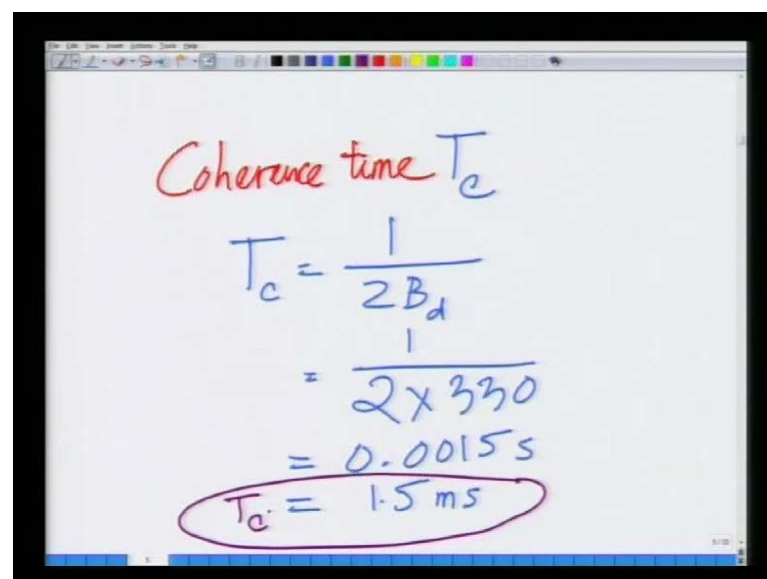 File Edit View Insert Actions Tools Help
Coherence time T_c
T_c = 1 / 2 B_d
= 1 / 2 × 330
= 0.0015 s
T_c = 1.5 ms